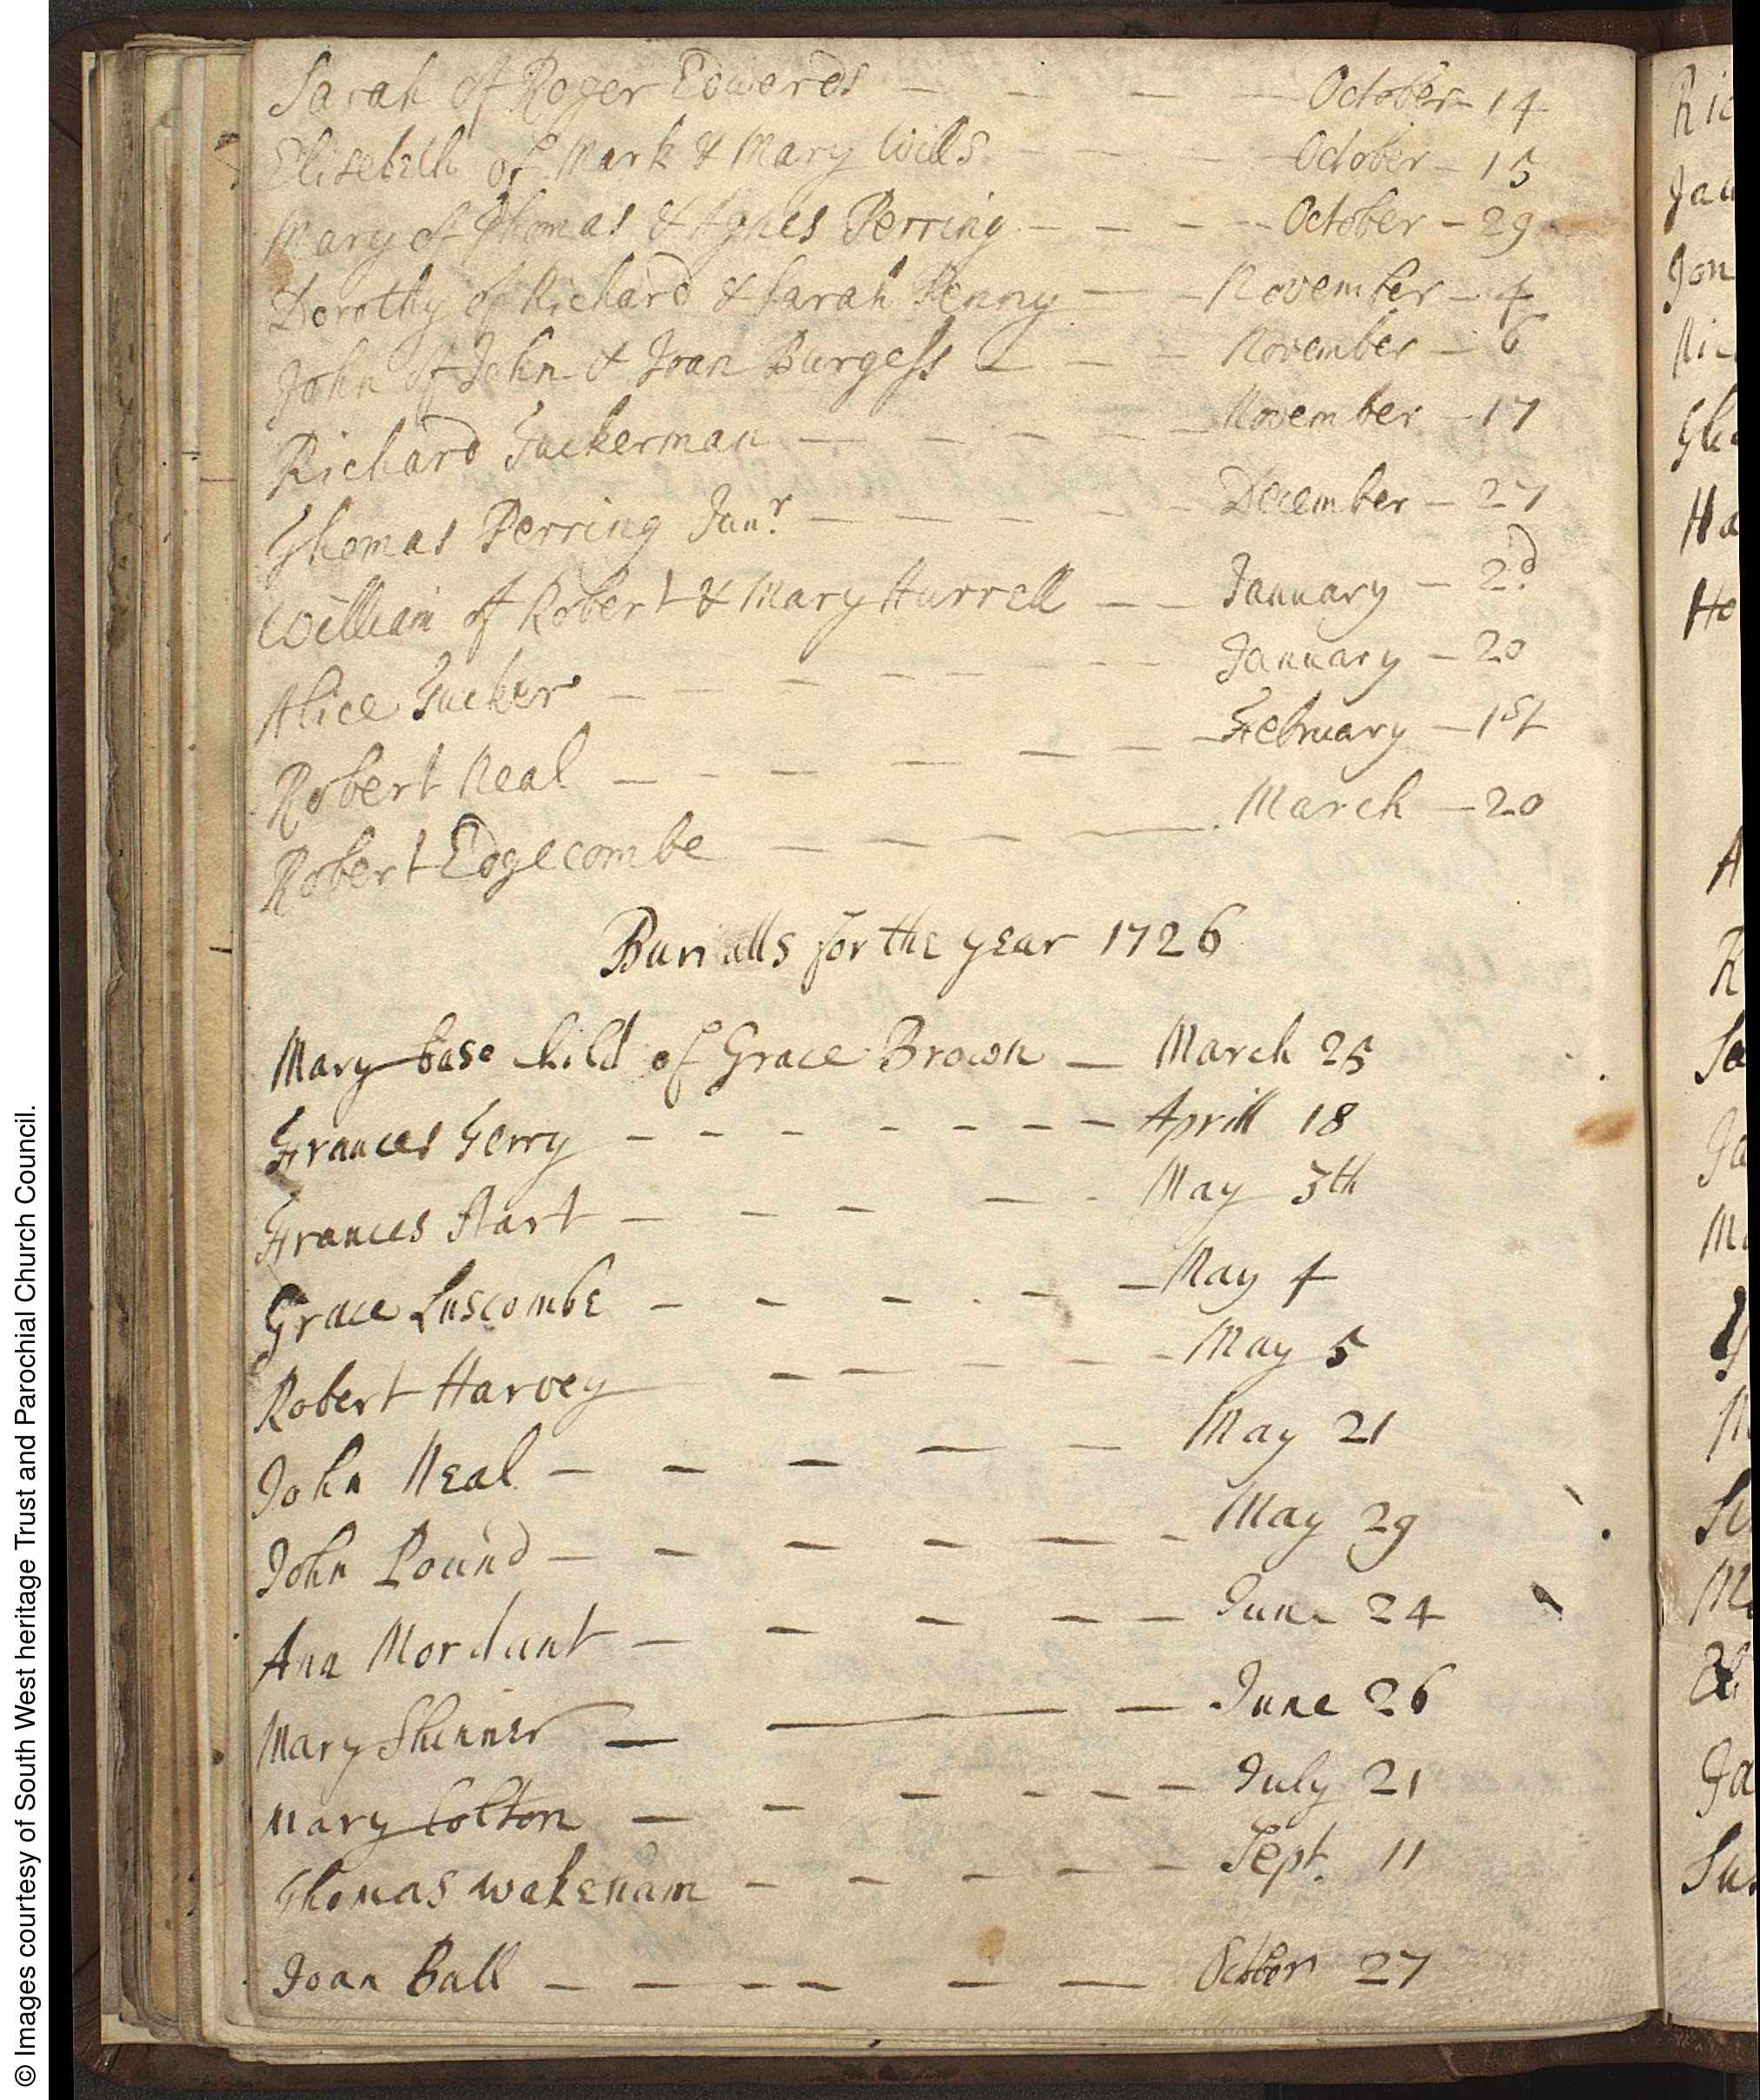 Sarah of Roger Edwards — — — — October - 14
Elisebeth of Mark & Mary Wills — — — October - 15
Mary of Thomas & Agnes Perring — — — October - 29
Dorothy of Richard & Sarah Penny — — November - 4
John of John & Joan Burgess — — — November - 6
Richard Tuckerman — — — — — November - 17
Thomas Perring Junr — — — — — December - 27
William of Robert & Mary Hurrell — — January - 2d
Alice Tucker — — — — — — — January - 20
Robert Neal — — — — — — February - 1st
Robert Edgecombe — — — — March - 20
Burialls for the year 1726
Mary base Child of Grace Brown — March 25
Frances Terry — — — — — — — Aprill 18
Frances Hart — — — — - May 3th
Grace Luscombe — — — — — May 4
Robert Harvey — — — — — May 5
John Neal — — — — — May 21
John Pound — — — — — — May 29
Ann Mordunt — — — — — June 24
Mary Shinner — — — June 26
Mary Colton — — — — — — July 21
Thomas Wakeham — — — — — Sept. 11
Joan Ball — — — — — — October 27
Ric
Jon
Ha
Ho
A
R
Sa
Ja
Ma
© Images courtesy of South West heritage Trust and Parochial Church Council.